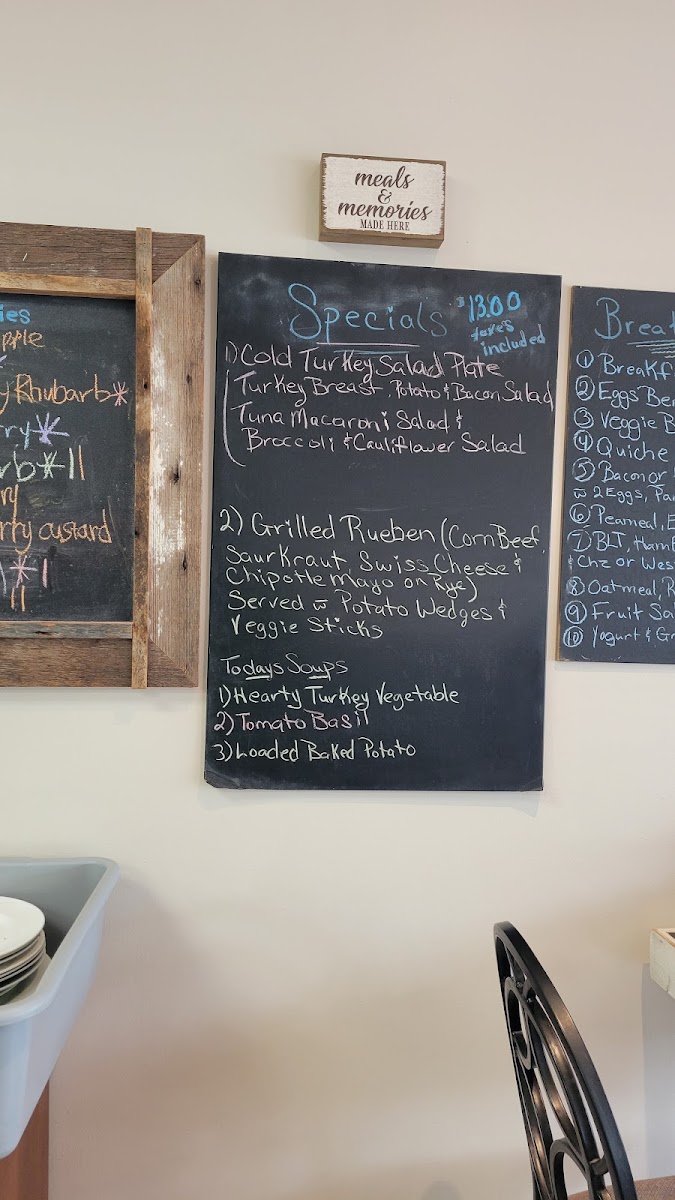 meals
&
memories
MADE HERE
ies
pple
y Rhubarb*
rry*
rb*11
ry
rry custard
*1
11
Specials
$13.00
taxes
included
1) Cold Turkey Salad Plate
Turkey Breast, Potato & Bacon Salad
Tuna Macaroni Salad &
Broccoli & Cauliflower Salad
2) Grilled Rueben (Corn Beef,
Saurkraut, Swiss Cheese &
Chipotle Mayo on Rye)
Served w Potato Wedges &
Veggie Sticks
Todays Soups
1) Hearty Turkey Vegetable
2) Tomato Basil
3) Loaded Baked Potato
Break
① Breakf
② Eggs Ben
③ Veggie B
④ Quiche
⑤ Bacon or
w 2 Eggs, Pan
⑥ Peameal, E
⑦ BLT, Ham &
Chz or West
⑧ Oatmeal, R
⑨ Fruit Sa
⑩ Yogurt & Gr